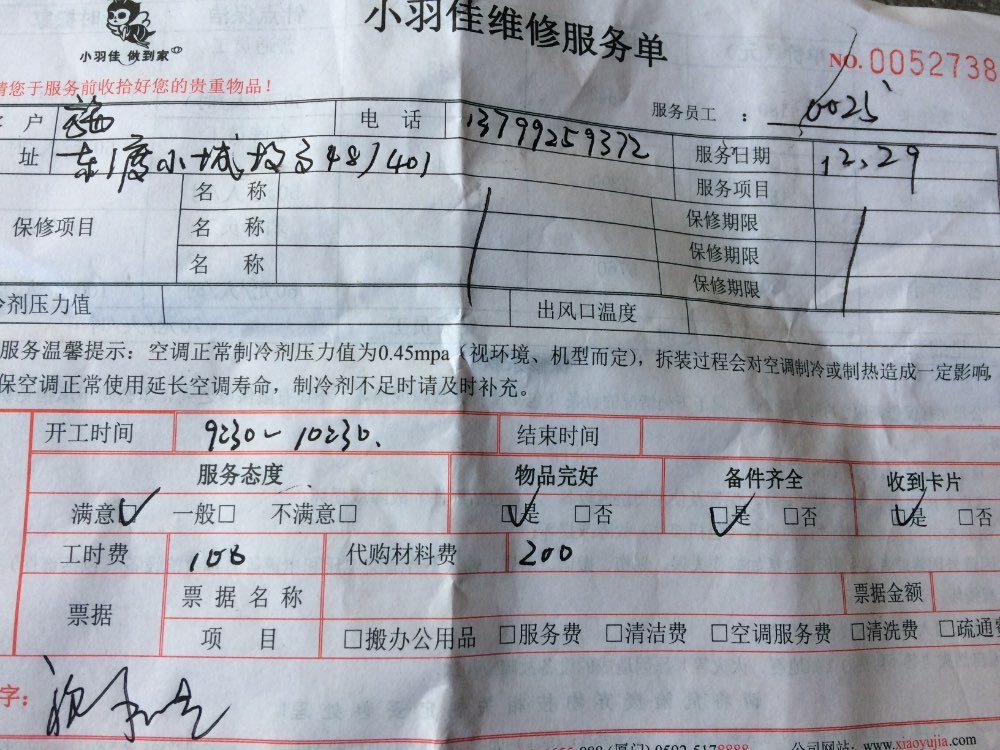 小羽佳 做到家
小羽佳维修服务单
NO.0052738
请您于服务前收拾好您的贵重物品！
服务员工 ： 0025
户 电 话 13799259372 服务日期 12.29
址 487401 服务项目
保修项目 名 称 保修期限
名 称 保修期限
名 称 保修期限
冷剂压力值 出风口温度
服务温馨提示：空调正常制冷剂压力值为0.45mpa（视环境、机型而定），拆装过程会对空调制冷或制热造成一定影响，
保空调正常使用延长空调寿命，制冷剂不足时请及时补充。
开工时间 9:30~10:30. 结束时间
服务态度 物品完好 备件齐全 收到卡片
满意□ 一般□ 不满意□ □是 □否 □是 □否 □是 □否
工时费 100 代购材料费 200
票据 票 据 名 称 票据金额
项 目 □搬办公用品 □服务费 □清洁费 □空调服务费 □清洗费 □疏通费
字：
(厦门) 0592-5178888 公司网站：www.xiaoyujia.com